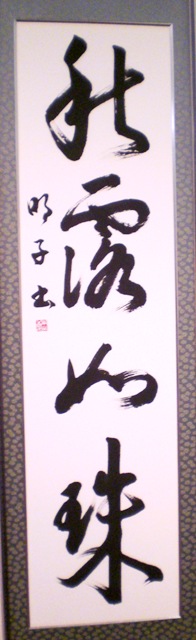 秋露如珠
明子書